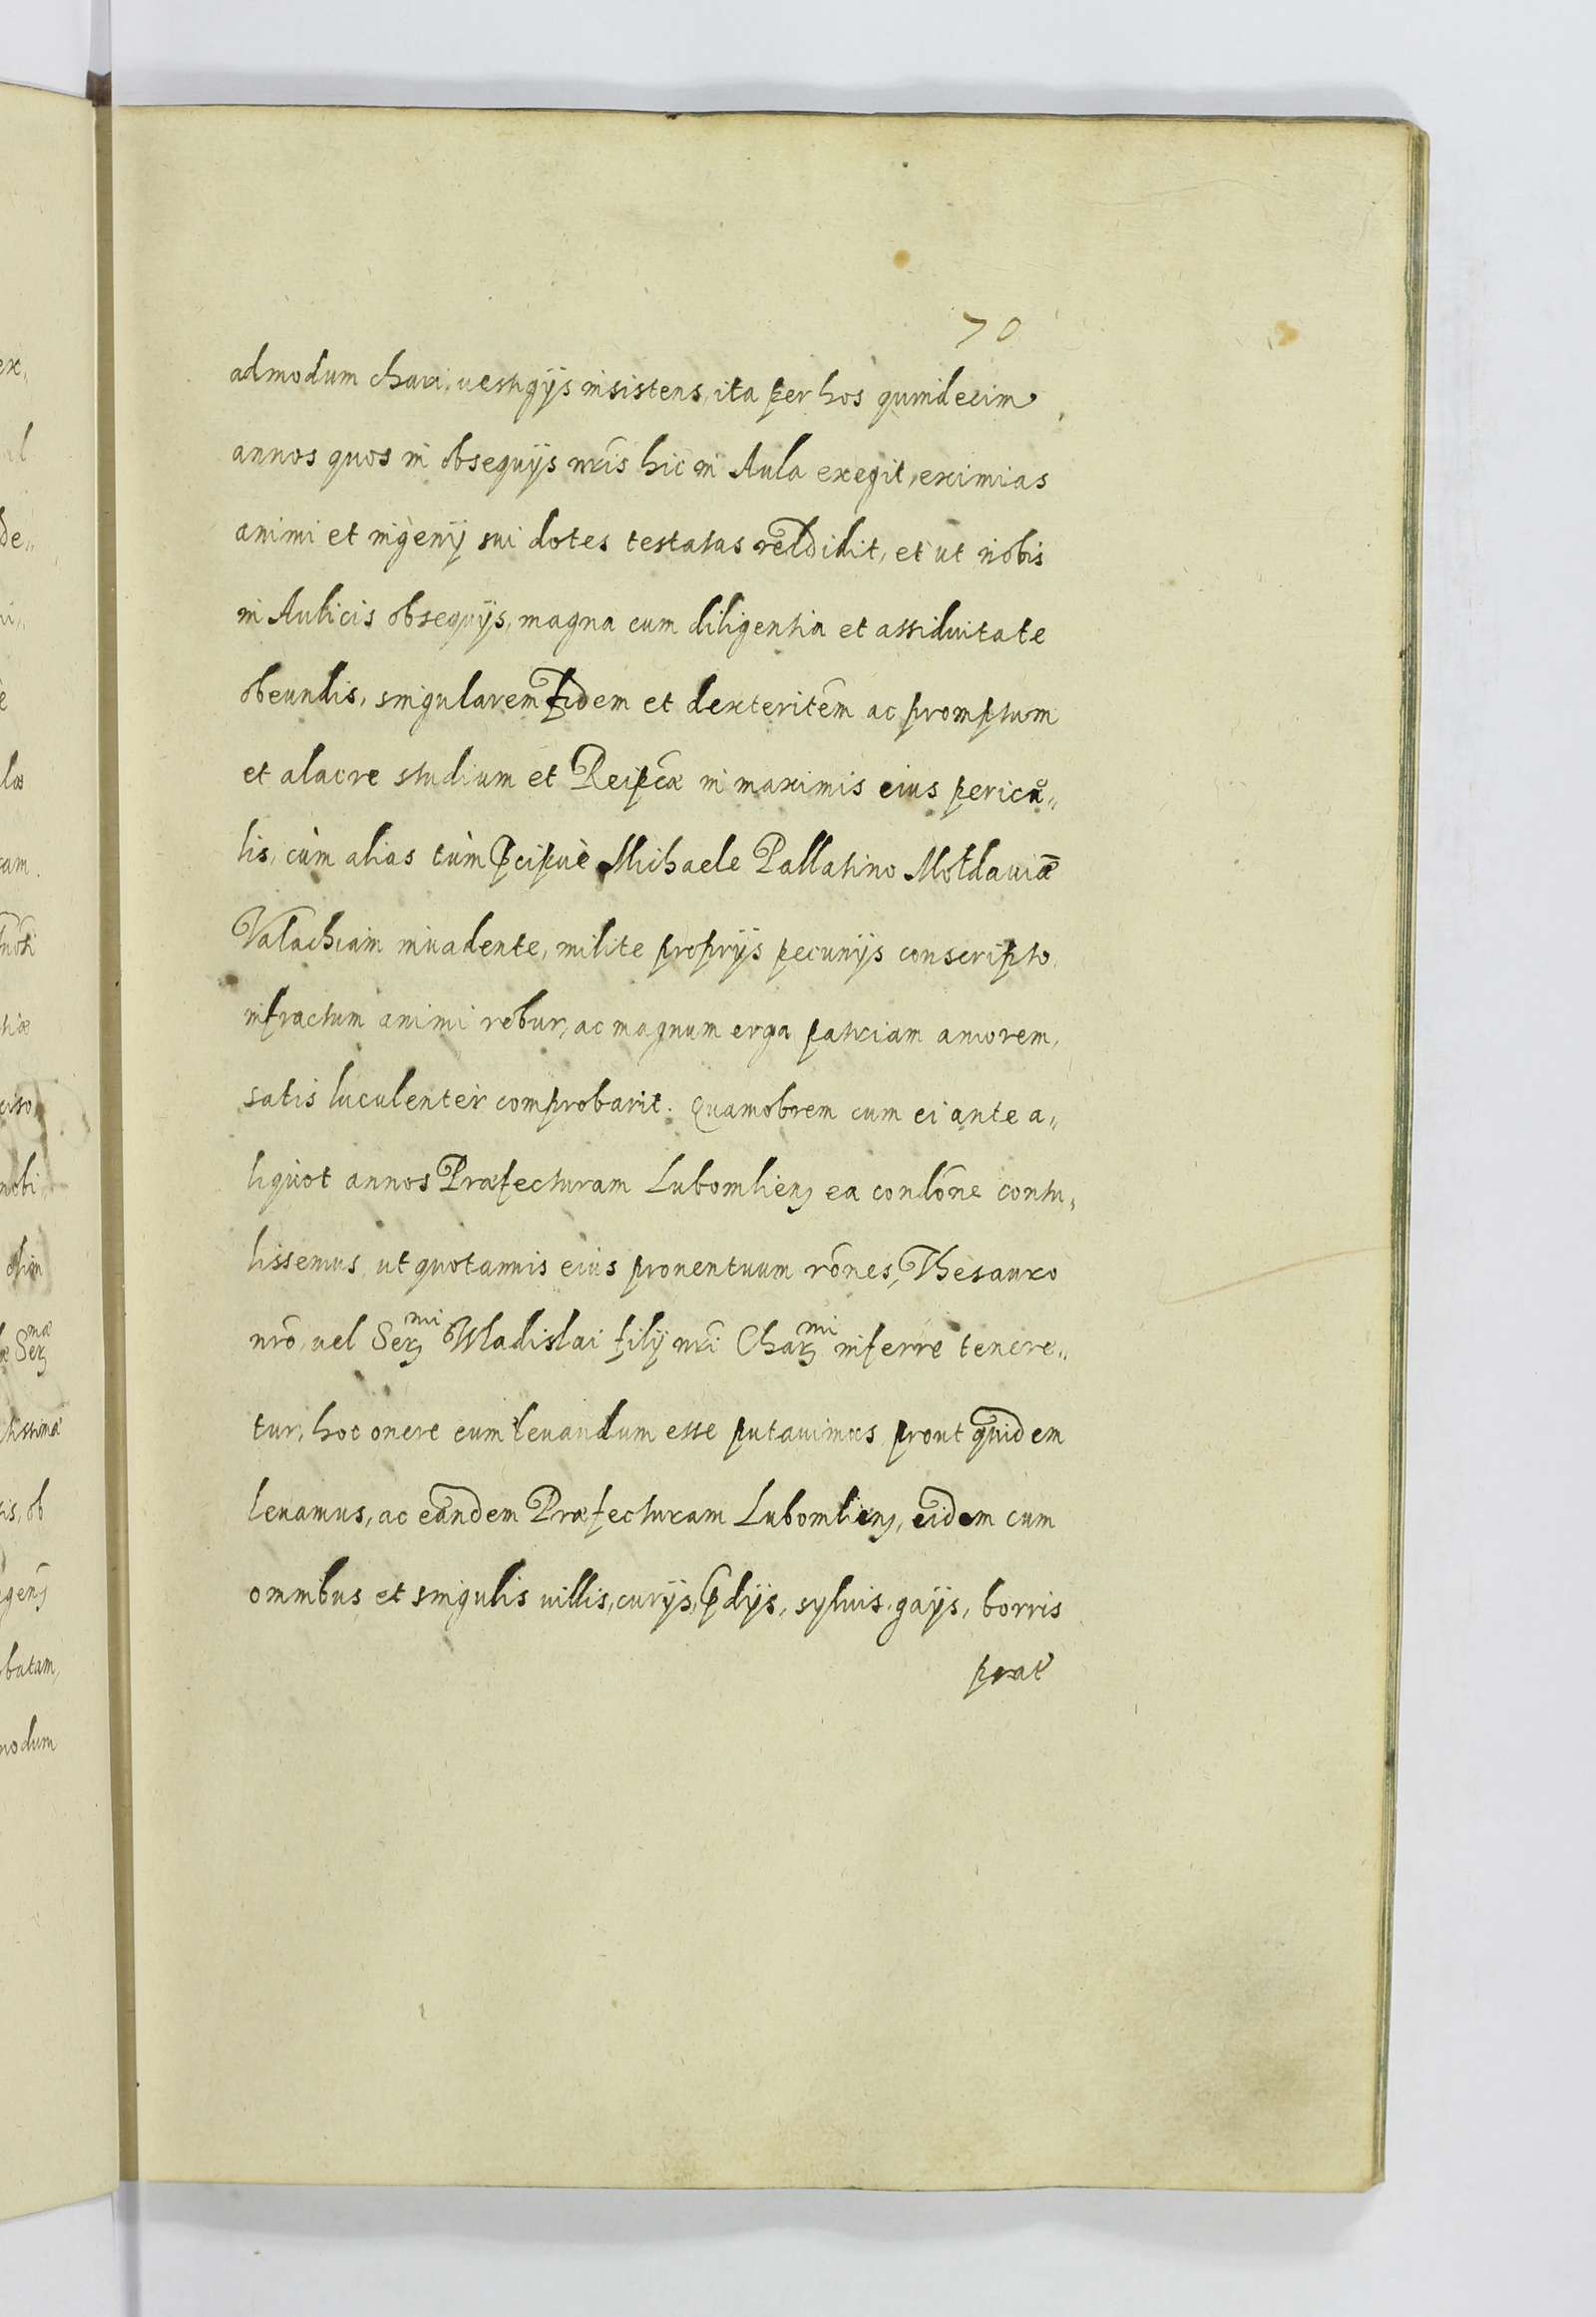 70
admodum chari, uestigijs insistens, ita per hos quindecim
annos quos in obsequijs nris hic in Aula exegit, eximias
animi et ingenij sui dotes testatas reddidit, et ut nobis
in Aulicis obsequijs, magna cum diligentia et assiduitate
obeundis, singularem fidem et dexteritẽm ac promptum
et alacre studium et Reipcæ in maximis eius pericu„
lis, cùm alias tùm pcipuè Michaele Pallatino Moldauiæ
Valachiam inuadente, milite proprijs pecunijs conscripto,
infractum animi robur, ac magnum erga patriam amorem,
satis luculenter comprobarit. Quamobrem cum ei ante a„
liquot annos Præfecturam Lubomliens ea condõne contu„
lissemus, ut quotannis eius prouentuum rõnes, Thesauro
nrõ, uel Serₘᵢ Wladislai filij nri Charₘᵢ inferre tenere„
tur, hoc onere eum leuandum esse putauimus, prout quidem
leuamus, ac eandem Præfecturam Lubomliens, eidem cum
omnibus et singulis uillis, curijs, pdijs, syluis, gaijs, borris
prat
ex,
al
de„
ni„
è
los
cam.
tiæ
nobi
olim
Serᵐᵃᵉ
tissima
tis, ob
batam,
modum